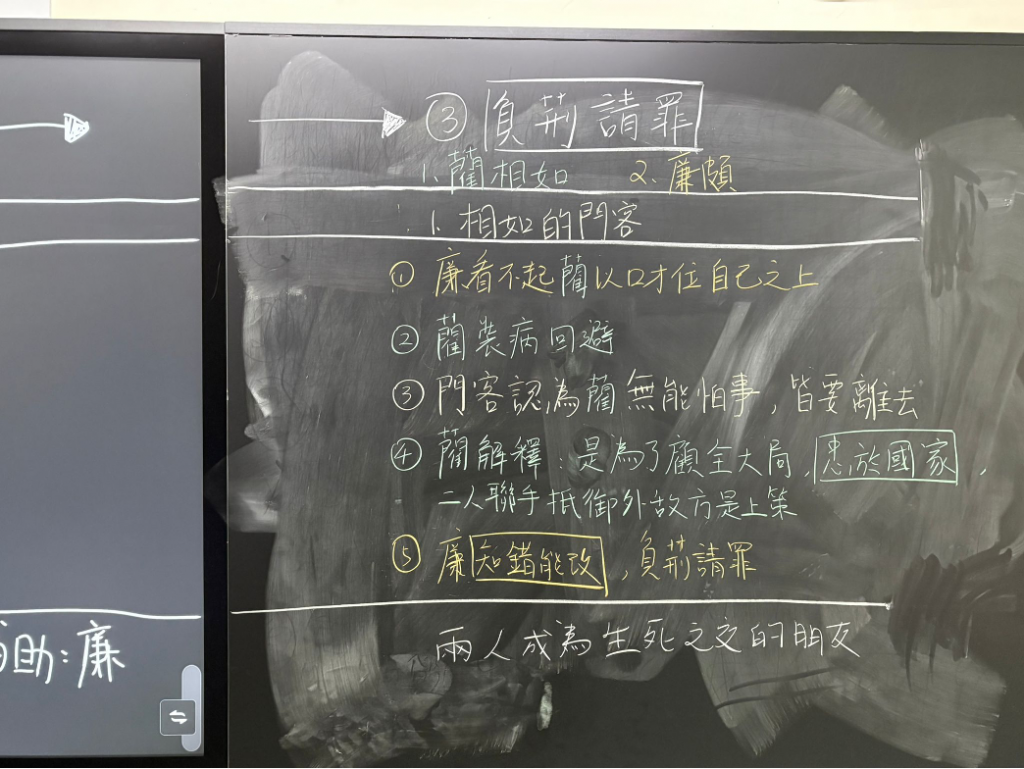 ③ 負荊請罪
1. 藺相如 2. 廉頗
1. 相如的門客
① 廉看不起藺以口才位自己之上
② 藺裝病回避
③ 門客認為藺無能怕事，皆要離去
④ 藺解釋：是為了顧全大局，忠於國家，
二人聯手抵御外敌方是上策
⑤ 廉知錯能改，負荊請罪
兩人成為生死之交的朋友
助：廉